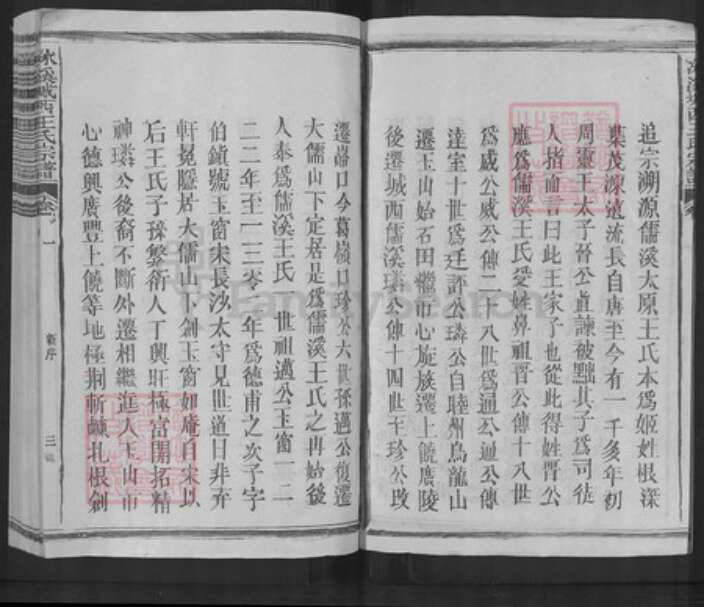 追宗溯源儒溪太原王氏本爲姬姓根深
葉茂源遠流長自唐至今有一千多年初
周靈王太子晉公直諫被黜其子爲司徒
人指而言曰此王家子也從此得姓晋公
應爲儒溪王氏受姓鼻祖晋公傳十八世
爲威公威公傳二十八世爲通公通公傳
逹室十世爲廷評公璘公自睦州烏龍山
遷玉山始石田繼市心旋族遷上饒廣陵
後遷城西儒溪璘公傳十四世至珍公改
遷嵓口今葛嶺口珍公六世孫邁公復遷
大儒山下定居是爲儒溪王氏之冉始後
人奉爲儒溪王氏一世祖邁公玉窗一一二
二二年至一一三零一年爲德甫之次子字
伯鎮號玉窗宋長沙太守見世道日非弃
軒冕隱居大儒山下創玉窗如庵自宋以
后王氏子孫繁衍人丁興旺極富開拓精
神璘公後裔不斷外遷相繼進入玉山市
心德興廣豐上饒等地極荆斬棘扎根創
冰溪城西王氏宗譜
卷之一
新序
三
FamilySearch